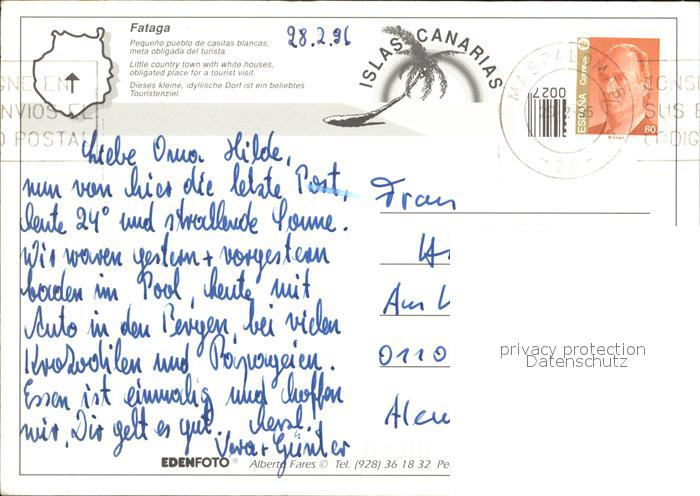 Fataga
Pequeño pueblo de casitas blancas,
meta obligada del turista.
Little country town with white houses,
obligated place for a tourist visit.
Dieses kleine, idyllische Dorf ist ein beliebtes
Touristenziel.
28.2.96
ISLAS CANARIAS
MASPALOMAS
0027
ESPAÑA
Correos
60
ENVIOS EL
POSTAL
SUS E
CODIG
Liebe Oma Hilde,
nun von hier die letzte Post,
heute 24° und strallende Sonne.
Wir waren gestern + vorgestern
baden im Pool, heute mit
Auto in den Bergen, bei vielen
Krokodilen und Papageien.
Essen ist einmalig und hoffen
wir, Dir geht es gut. Herzl.!
Vera + Günter
Frau
Am
0110
privacy protection
Datenschutz
EDENFOTO Alberto Fares © Tel. (928) 36 18 32